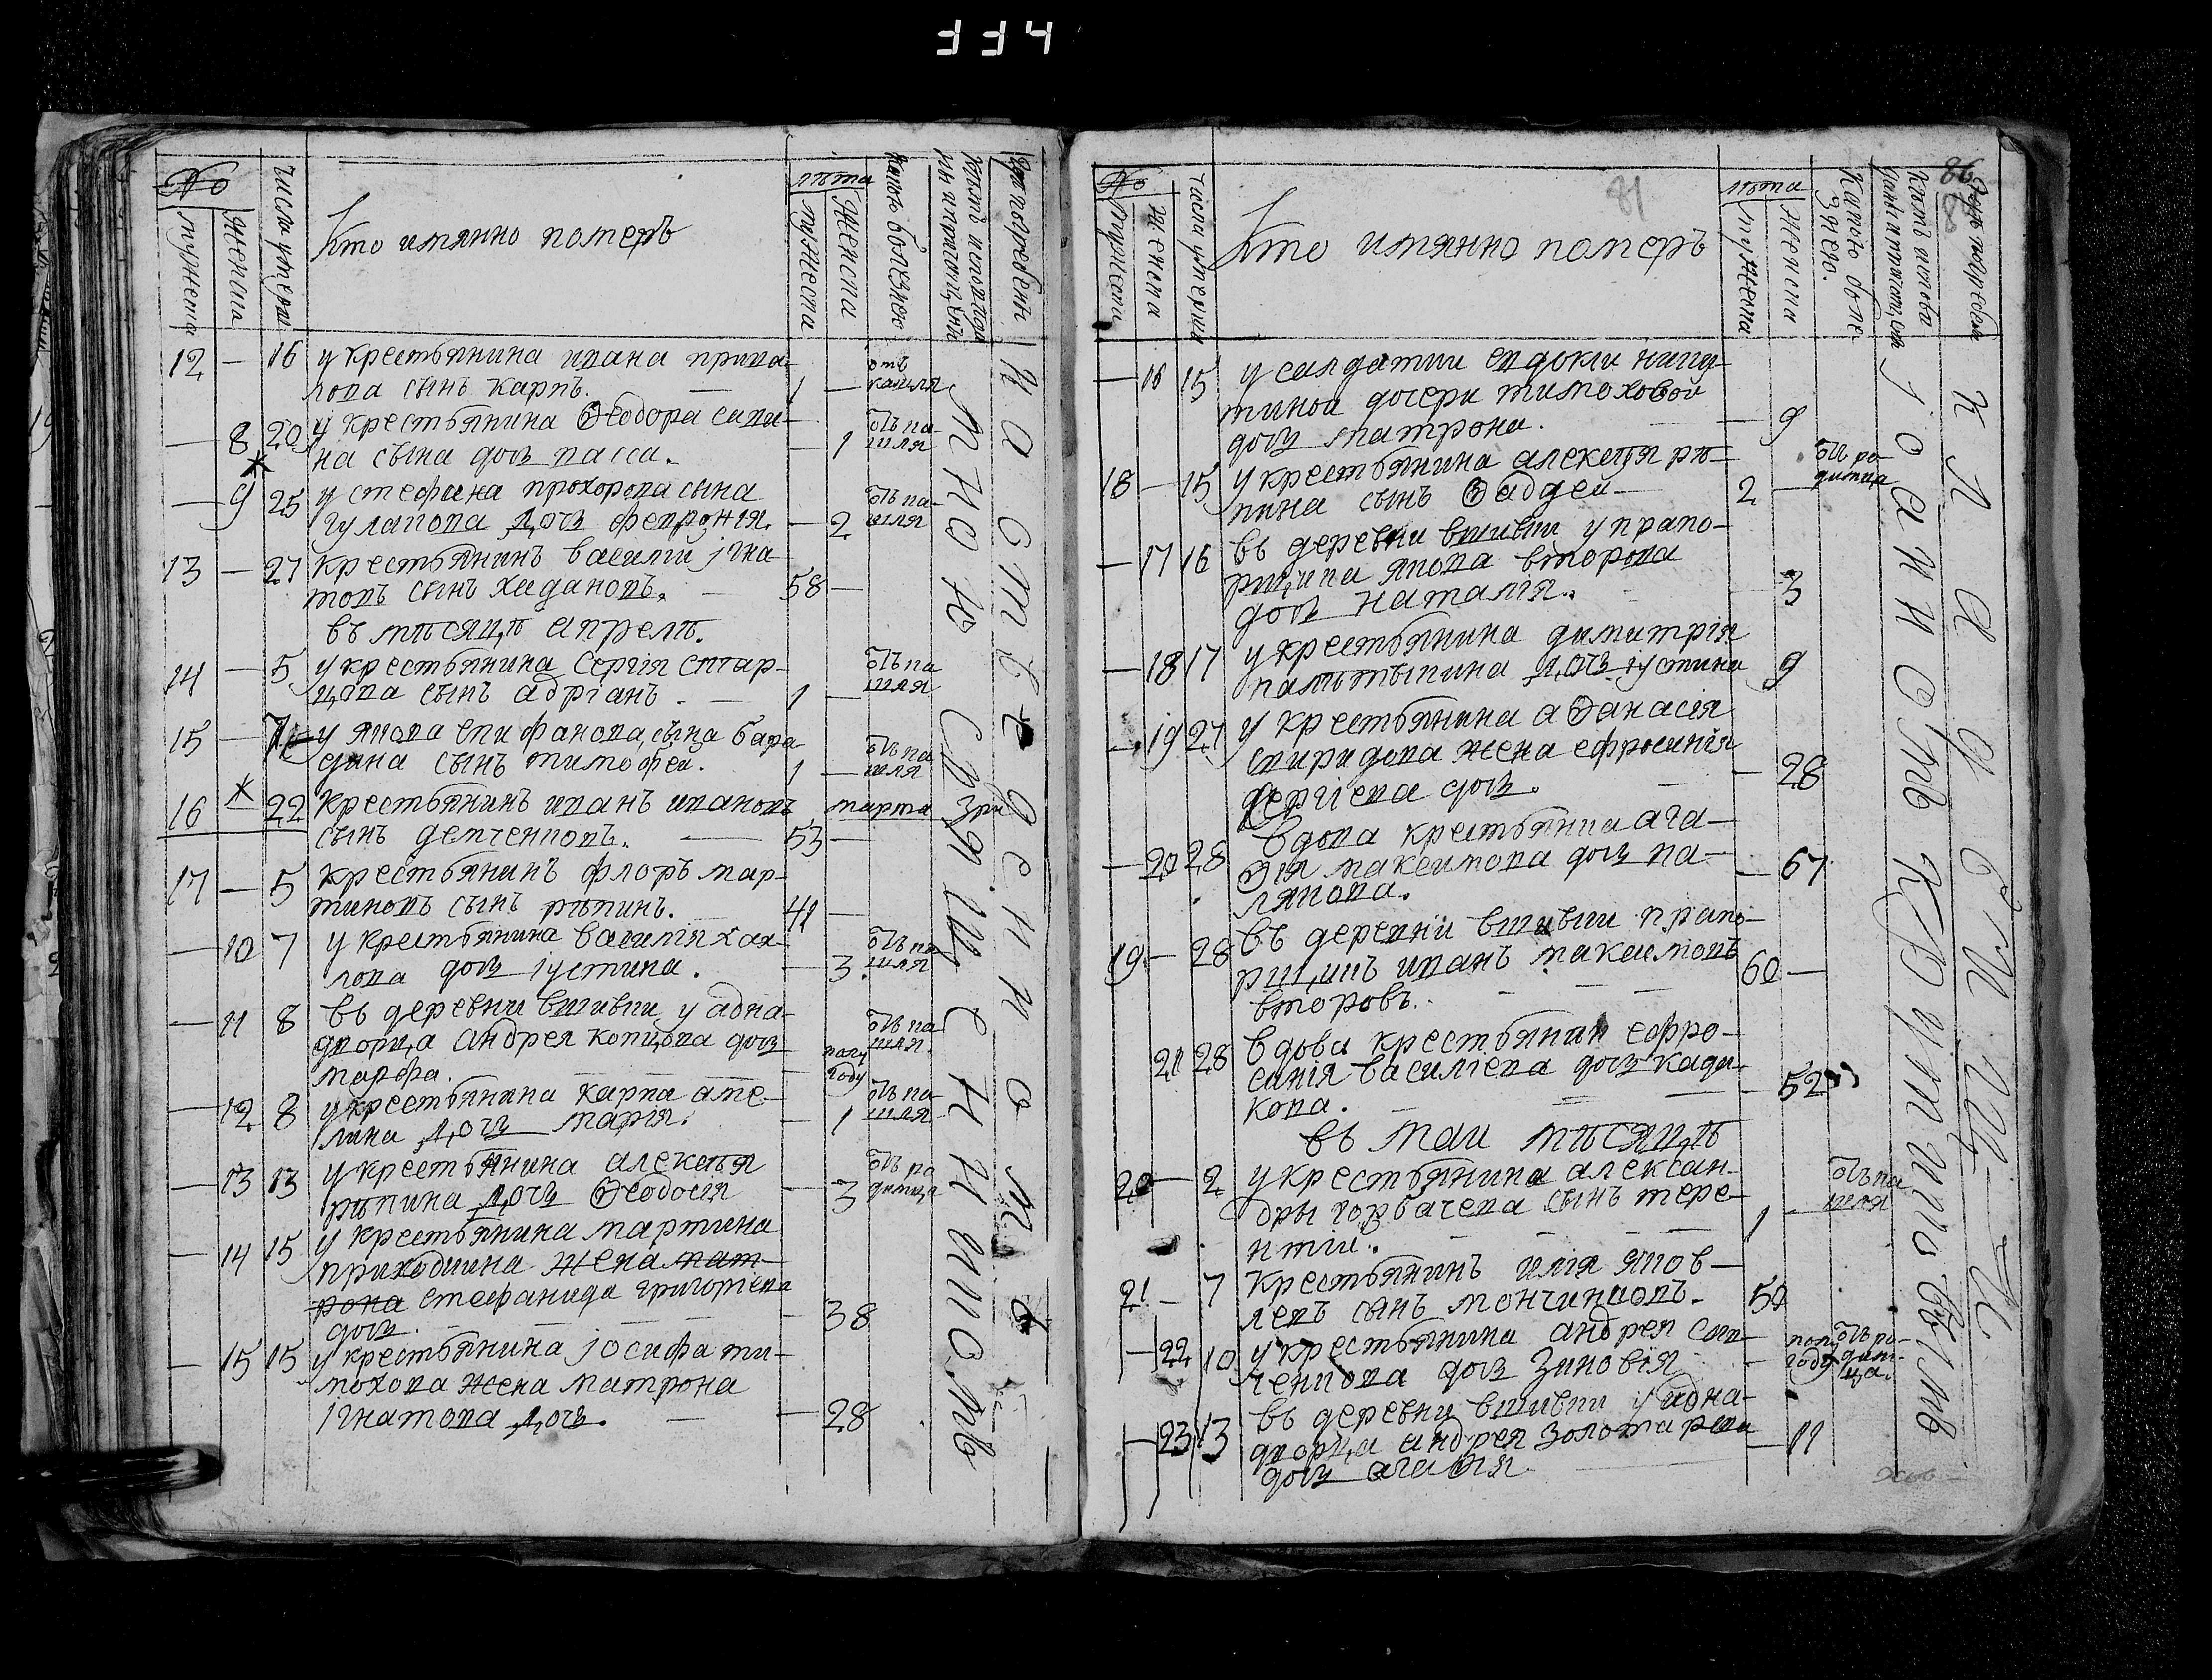 334
№
мужеска
женска
числа умерш
Кто имянно померъ
лѣта
мужеска
женска
какою болезнею
кѣмъ исповѣдо
ны и причащены
где погребены
12 — 16 у крестьянина ивана прива-
лова сынъ карпъ. — 1 — отъ кашля
— 8 20 у крестьянина Ѳеодора сави-
на сына дочь васса. — 1 отъ ка-
шля
— 9 25 у стефана прохорова сына
гулакова дочь феврония. — 2 отъ ка-
шля
13 — 27 крестьянинъ василии игна-
товъ сынъ хадановъ. — 58 —
въ мѣсяцѣ апрелѣ.
14 — 5 у крестьянина Сергія
сынъ адріанъ. — 1 — отъ ка
шля
15 — у якова епифанова сына бара-
сынъ тимофеи. 1 — отъ ка
шля
16 — 22 крестьянинъ иванъ ивановъ марта
сынъ демченковъ. — 53 —
17 — 5 крестьянинъ флоръ мар-
тиновъ сынъ рѣпинъ. 41 —
— 10 7 у крестьянина василія хах-
лова дочь іустина. — 3 отъ ка
шля
— 11 8 въ деревни вшивки у адна-
дворца андрея копцова дочь
марфа. — полу
году отъ ка
шля
— 12 8 у крестьянина карпа аме-
лина дочь марія. — 1 отъ ка-
шля
— 13 13 у крестьянина алексѣя
рѣпина дочь Ѳеодосія — 3 отъ ро
димца
— 14 15 у крестьянина мартина
приходкина жена мат-
рона стефанида григоріева
дочь. — 38
— 15 15 у крестьянина іосифа ти-
мохова жена матрона
игнатова дочь. — 28
на отведенномъ
мною священникомъ
81
86
№
мужеска
женска
числа умерших
Кто имянно померъ
лѣта
мужеска
женска
Какою боле
знею.
— 16 15 у салдатки евдокии ники-
тиной дочери тимоховой
дочь матрона. — 9
18 — 15 у крестьянина алексѣя рѣ-
пина сынъ Ѳаддеи — 2 — отъ ро-
димца
— 17 16 въ деревни вшивки у прапо-
рщика якова второва
дочь наталія. — 3
— 18 17 у крестьянина димитрія
дочь іустина 9
— 19 27 у крестьянина аѲанасія
спиридова жена ефросинія
сергіева дочь. — 28
— 20 28 вдова крестьянка ага-
Ѳія максимова дочь па-
лякова. — 67
19 — 28 въ деревни вшивки прапо-
рщикъ иванъ максимовъ
второвъ. 60 —
21 28 вдова крестьянк ефро-
синія василіева дочь кади-
кова. — 52
въ маи мѣсяцѣ
20 — 2 у крестьянина алексан-
дры горбачева сынъ тере-
нтіи. — 1 — отъ ка
шля
21 — 7 крестьянинъ илія яков-
левъ сынъ мончинковъ. 50
— 22 10 у крестьянина андрея сав-
ченкова дочь зиновія — полу
году отъ ро-
дим-
ца.
— 23 13 въ деревни вшивки у адна-
дворца андрея золотарева
дочь агаѲія — 11
іоанномъ
кладбищи